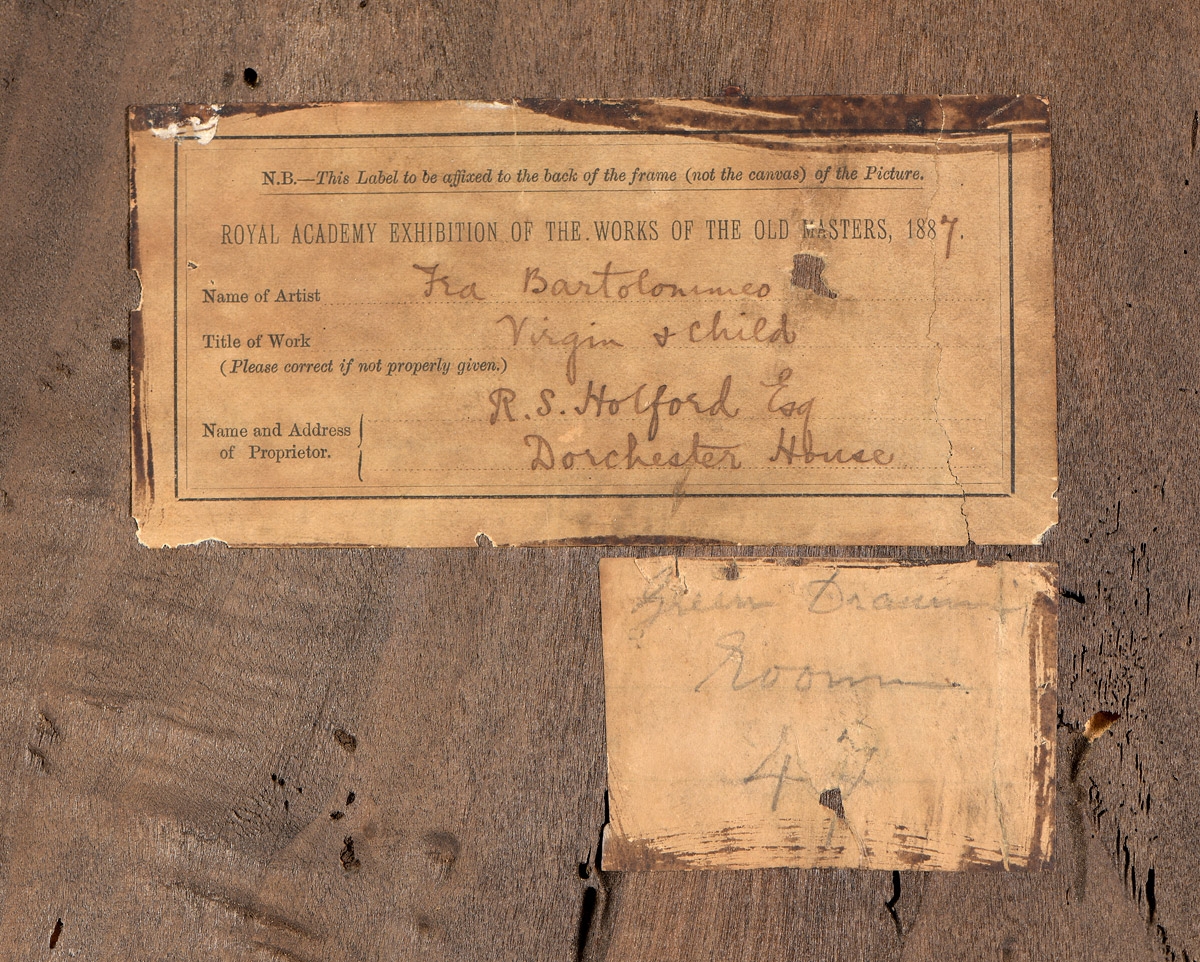 N.B.—This Label to be affixed to the back of the frame (not the canvas) of the Picture.
ROYAL ACADEMY EXHIBITION OF THE WORKS OF THE OLD MASTERS, 1887.
Name of Artist Fra Bartolommeo
Title of Work Virgin & Child
(Please correct if not properly given.)
R. S. Holford Esq
Name and Address
of Proprietor. Dorchester House
Green Drawing
Room
4